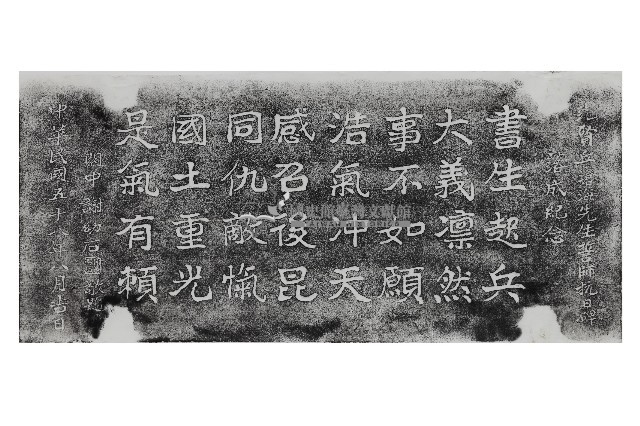 賀丘先生誓師抗日碑
落成紀念
書生起兵
大義凛然
事不如願
浩氣冲天
感召後昆
同仇敵愾
國土重光
是氣有賴
閩中謝幼石敬題
中華民國五十年八月吉日